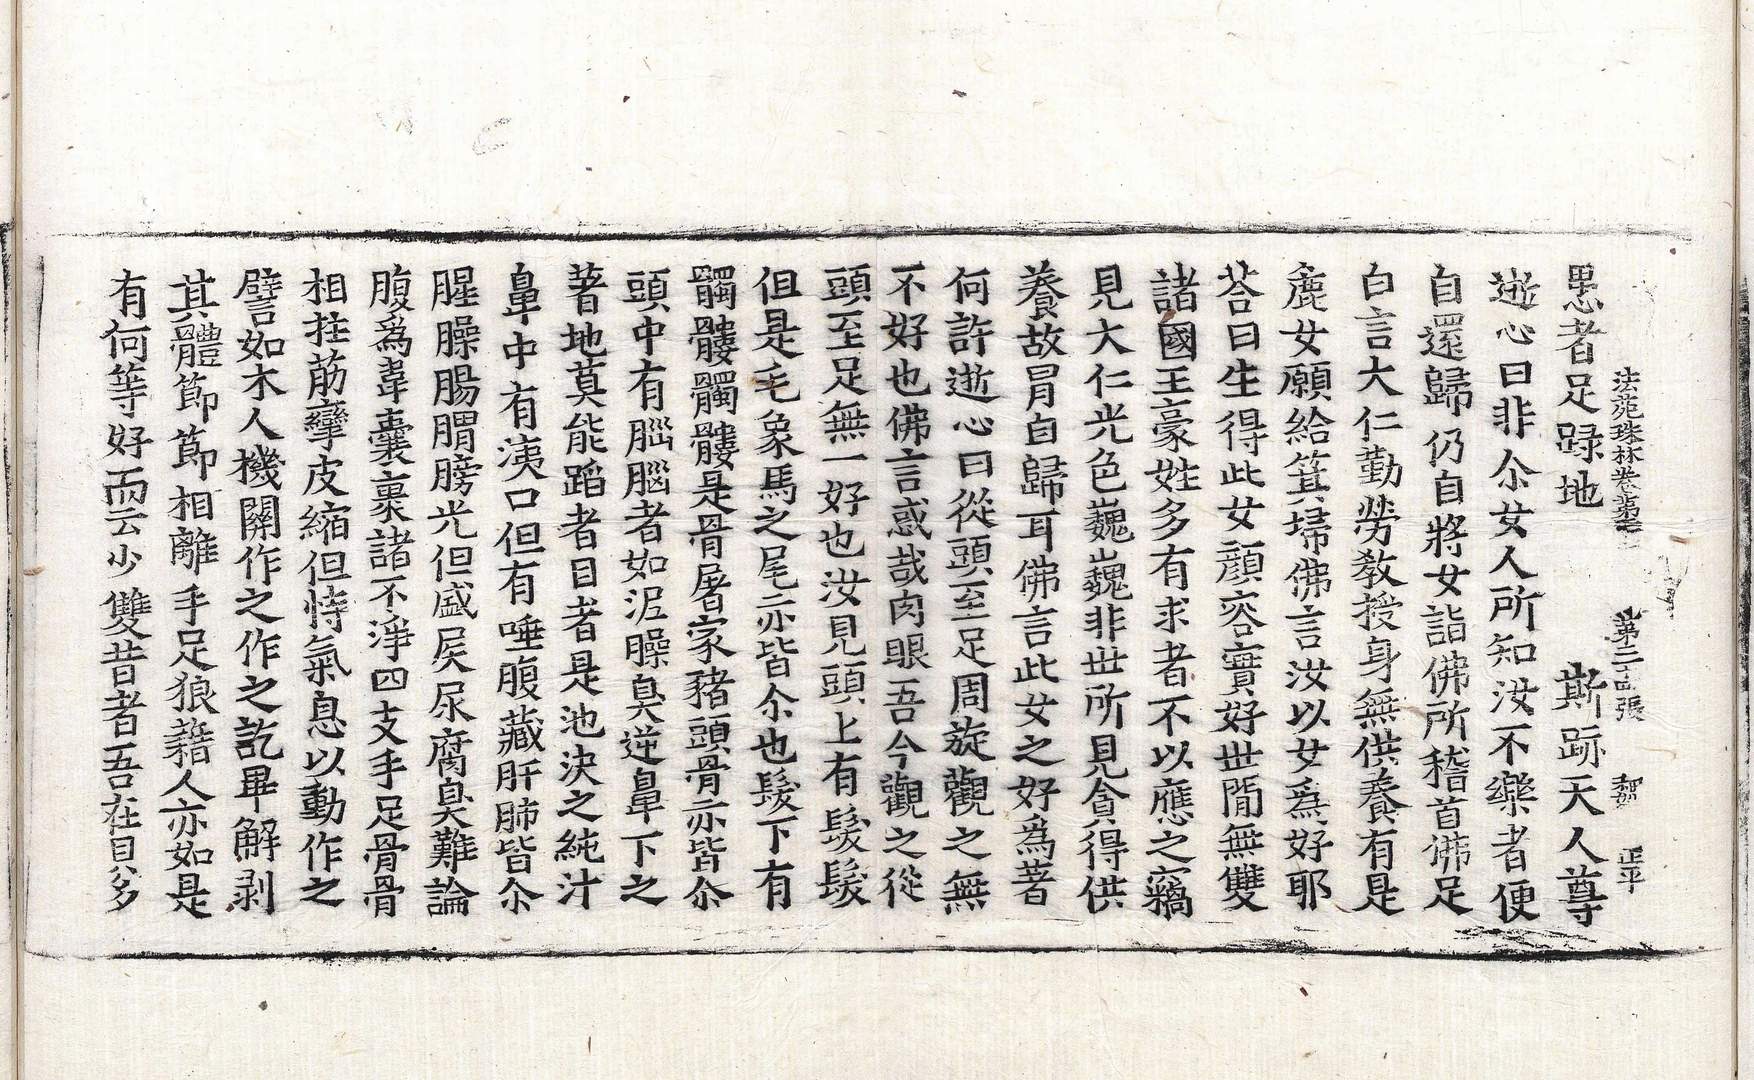 法苑珠林卷第 第二 張 正平
愚者足踧地 斯跡天人尊
逝心曰非尒女人所知汝不樂者便
自還歸仍自將女詣佛所稽首佛足
白言大仁勤勞教授身無供養有是
麁女願給箕埽佛言汝以女爲好耶
荅曰生得此女顔容實好世閒無雙
諸國王豪姓多有求者不以應之竊
見大仁光色巍巍非世所見貪得供
養故冐自歸耳佛言此女之好爲著
何許逝心曰從頭至足周旋觀之無
不好也佛言惑哉肉眼吾今觀之從
頭至足無一好也汝見頭上有髮髮
但是毛象馬之尾亦皆尒也髮下有
髑髏髑髏是骨屠家豬頭骨亦皆尒
頭中有腦腦者如泥臊臭逆鼻下之
著地莫能蹈者目者是池決之純汁
鼻中有洟口但有唾腹藏肝肺皆尒
腥臊腸胃膀光但盛屎尿腐臭難論
腹爲韋囊裹諸不淨四支手足骨骨
相拄筋攣皮縮但恃氣息以動作之
譬如木人機關作之作之訖畢解剥
其體節節相離手足狼藉人亦如是
有何等好而云少雙昔者吾在貝多